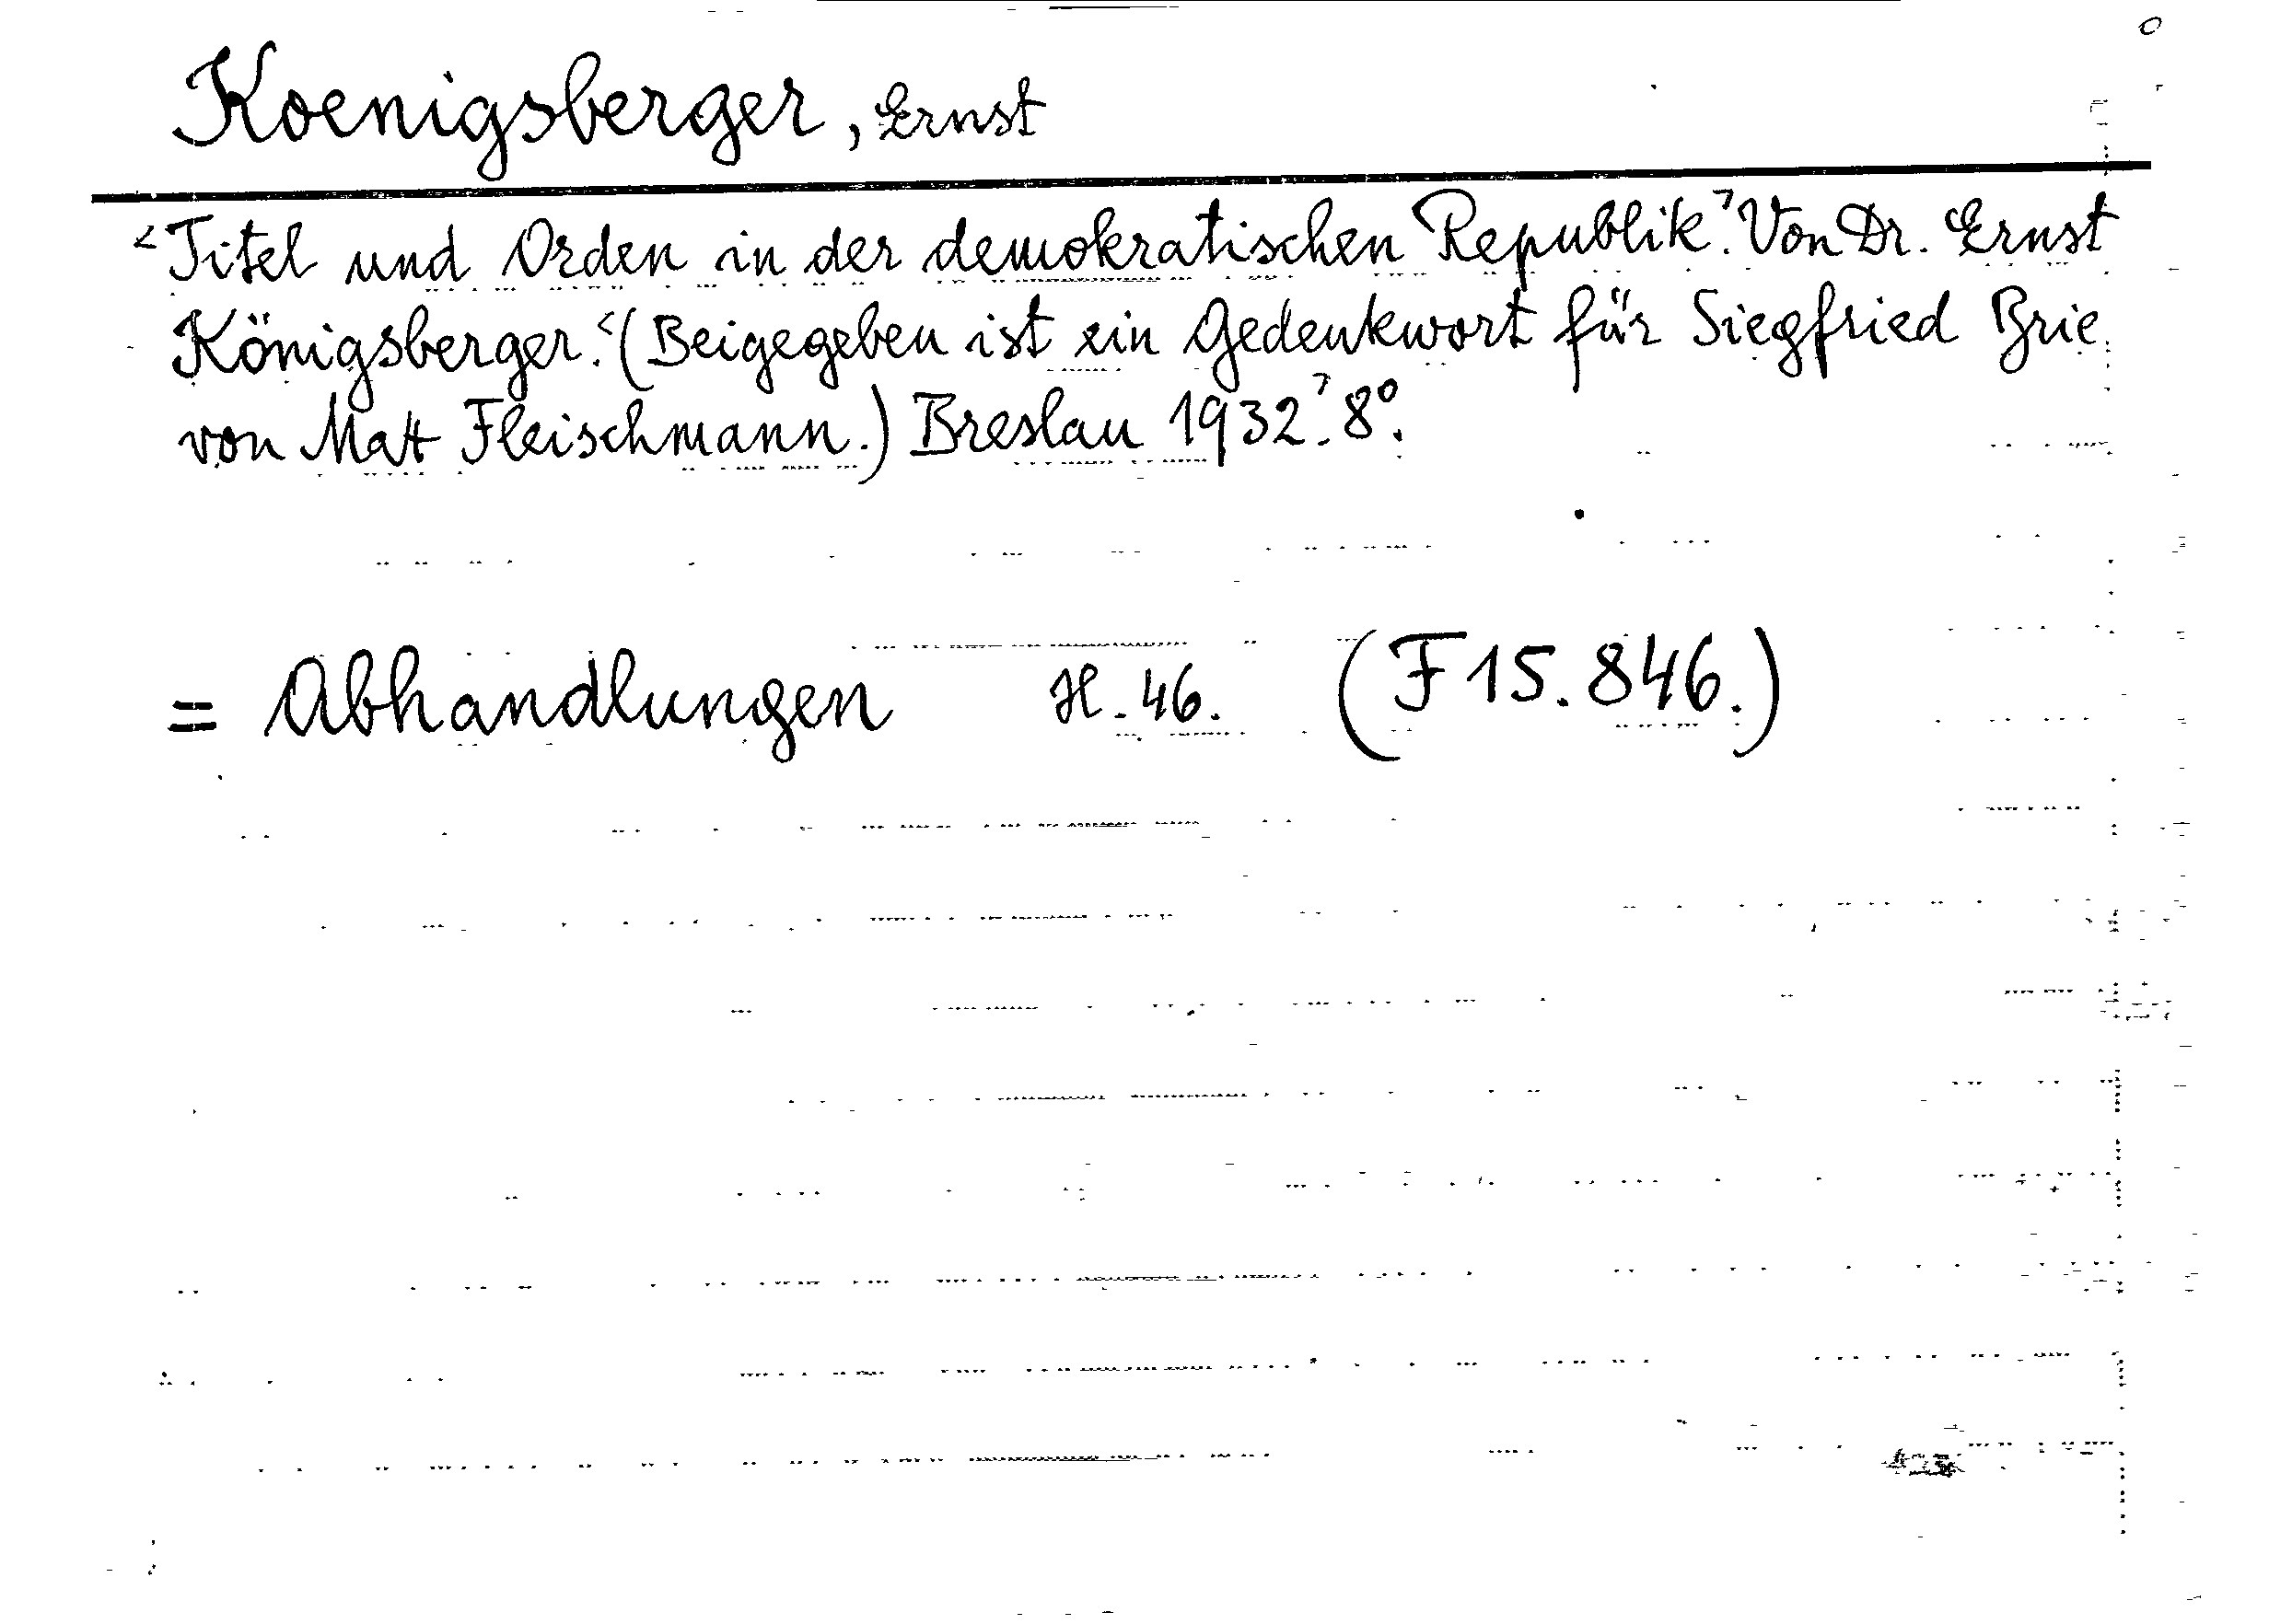 Koenigsberger, Ernst
<Titel und Orden in der demokratischen Republik.> Von Dr. Ernst
Königsberger.<(Beigegeben ist ein Gedenkwort für Siegfried Brie
von Matt Fleischmann.) Breslau 1932.> 8°.
= Abhandlungen H. 46. (F 15.846.)